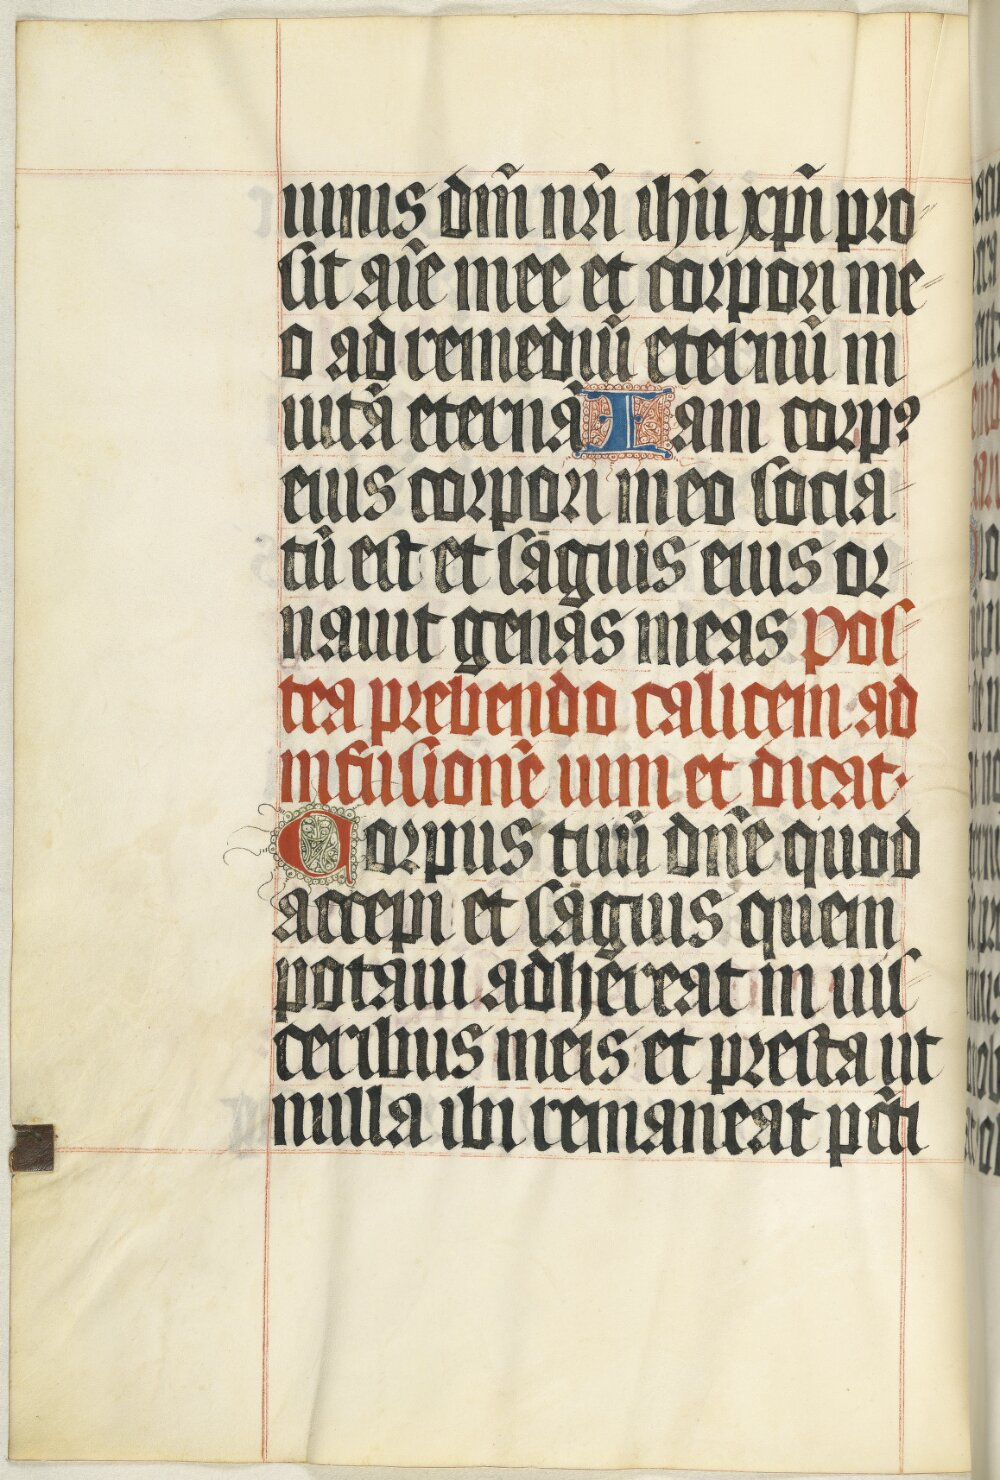 uinis dm̄ nr̄i ihū xp̄i pro⸗
sit aīe mee et corpori me⸗
o ad remediū eternū in
uitā eternā Iam corpꝰ
eius corpori meo socia⸗
tū est et sāguis eius or⸗
nauit genas meas Pos⸗
tea prebendo calicem ad
infusionē uini et dicat·
Corpus tuū dn̄e quod
accepi et sāguis quem
potaui adhereat in uis⸗
ceribus meis et presta ut
nulla ibi remaneat pc̄ti